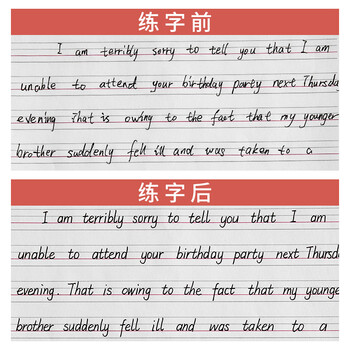 练字前
I am terribly sorry to tell you that I am
unable to attend your birthday party next Thursday
evening That is owing to the fact that my younger
brother suddenly fell ill and was taken to a
练字后
I am terribly sorry to tell you that I am
unable to attend your birthday party next Thursd
evening. That is owing to the fact that my younge
brother suddenly fell ill and was taken to a